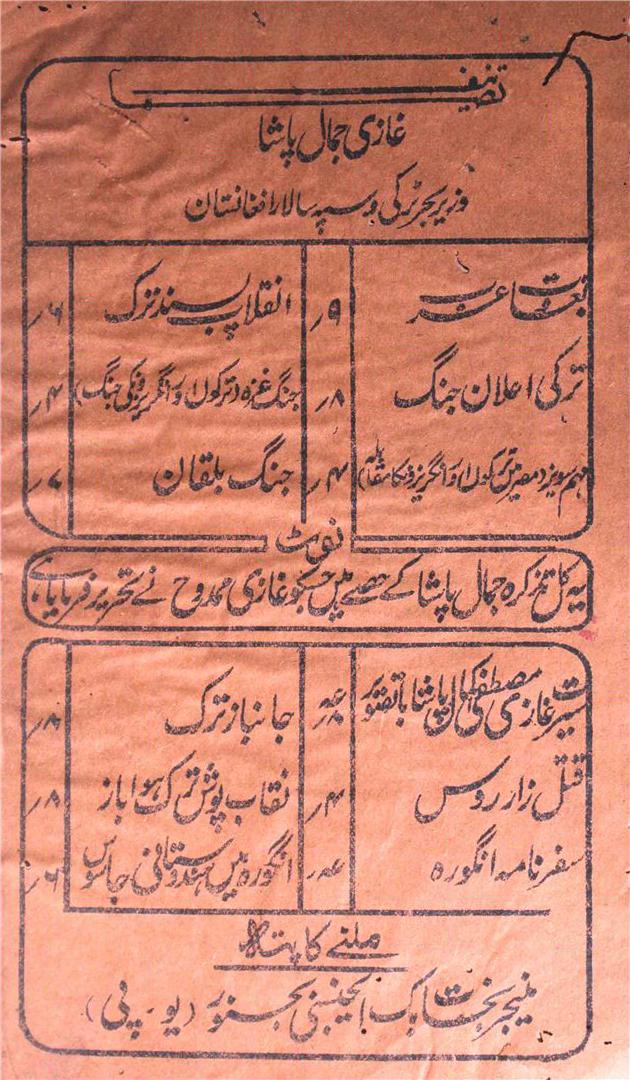 تصنیف
غازی جمال پاشا
وزیر بحر ترکی و سپہ سالار افغانستان
بغاوت عرب ۹؍ انقلاب پسند ترک ۶؍
ترکی اعلان جنگ ۸؍ جنگ غزہ (ترکوں اور انگریزونکی جنگ) ۴؍
مہم سویز (مصر میں ترکوں اور انگریزونکا مقابلہ) ۴؍ جنگ بلقان ۷؍
نوٹ
یہ کل تذکرہ جمال پاشا کے حصے ہیں جسکو غازی ممدوح نے تحریر فرمایا ہے،
سیرت غازی مصطفی کمال پاشا با تصویر جانباز ترک ۸؍
قتل زار روس ۴؍ نقاب پوش ترک ہوا باز ۸؍
سفر نامہ انگورہ انگورہ میں ہندوستانی جاسوس ۶؍
ملنے کا پتہ
منیجر بک ایجنسی بجنور (یو۔ پی)